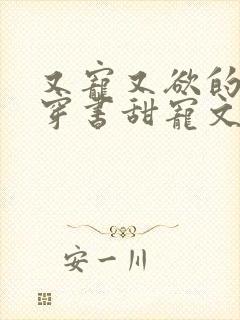 又寵又欲的
穿書甜寵文
安一川